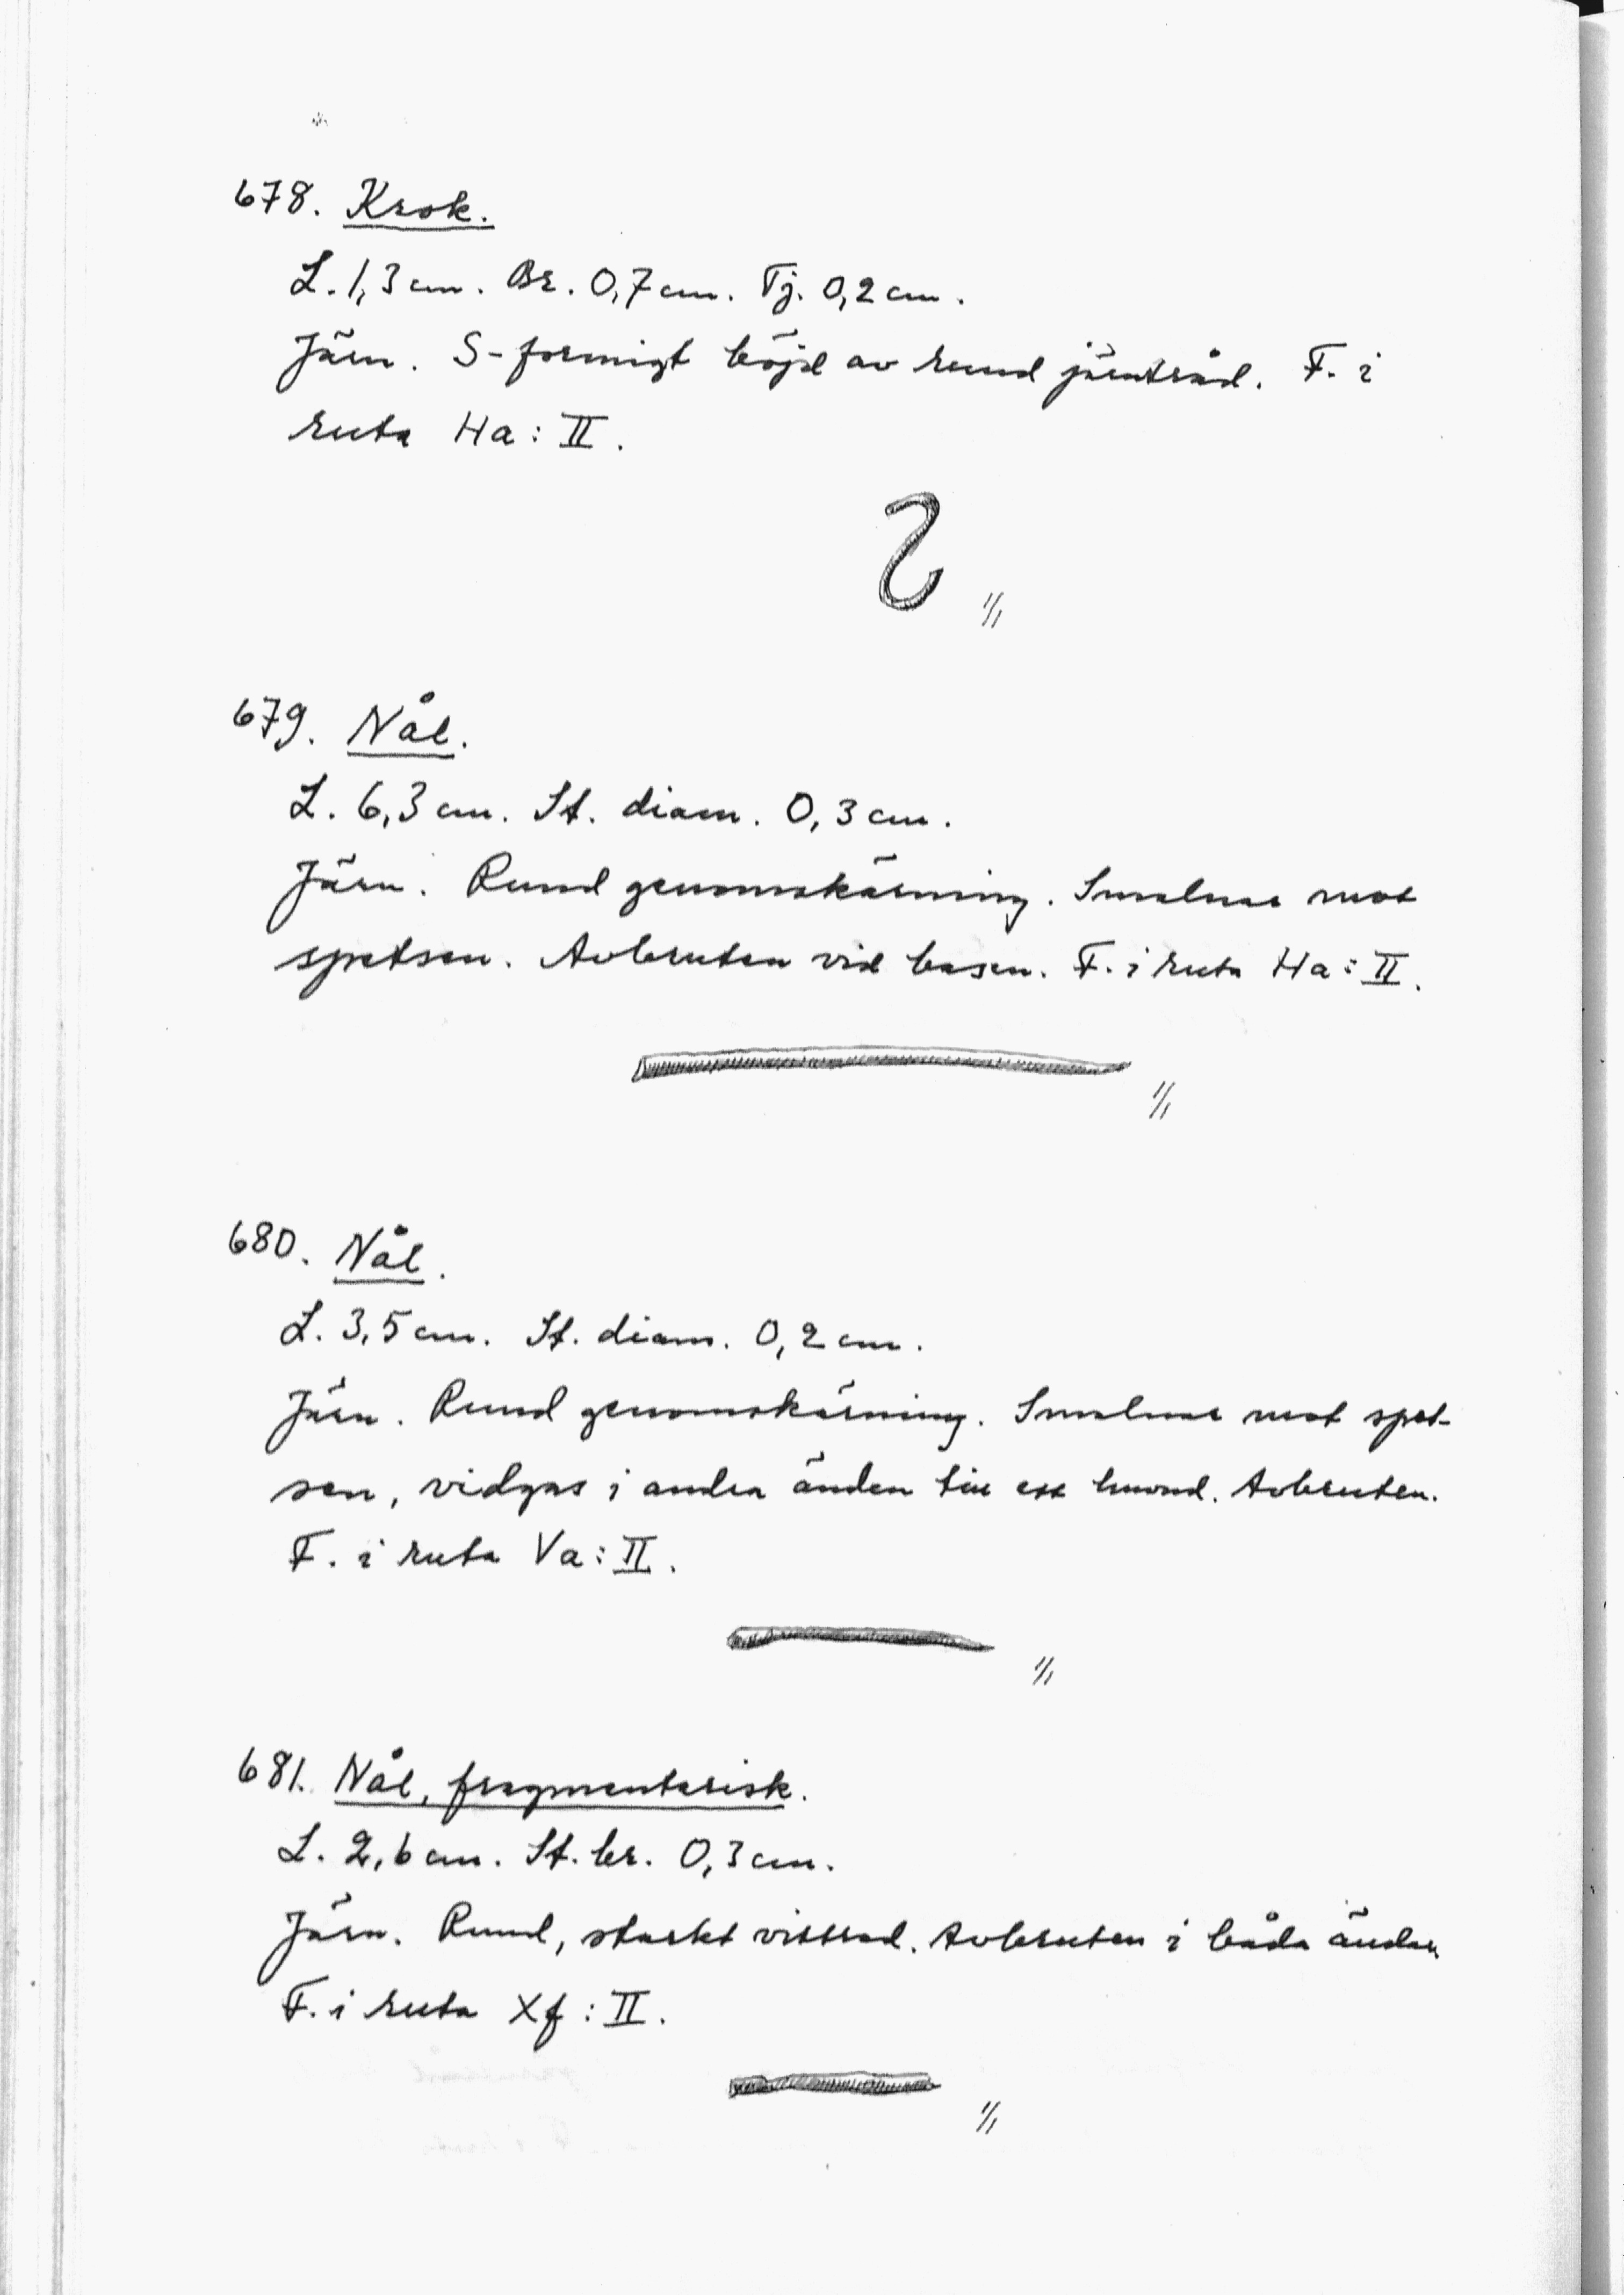 678. Krok.
L. 1,3 cm. Br. 0,7 cm. Tj. 0,2 cm.
Järn. S-formigt böjd av rund järntråd. F. i
ruta Ha: II.
1/1
679. Nål.
L. 6,3 cm. St. diam. 0,3 cm.
Järn. Rund genomskärning. Smalnar mot
spetsen. Avbruten vid basen. F. i ruta Ha: II.
1/1
680. Nål.
L. 3,5 cm. St. diam. 0,2 cm.
Järn. Rund genomskärning. Smalnar mot spet-
sen, vidgas i andra änden till ett huvud. Avbruten.
F. i ruta Va: II.
1/1
681. Nål, fragmentarisk.
L. 2,6 cm. St. br. 0,3 cm.
Järn. Rund, starkt vittrad. Avbruten i båda ändar.
F. i ruta Xf: II.
1/1